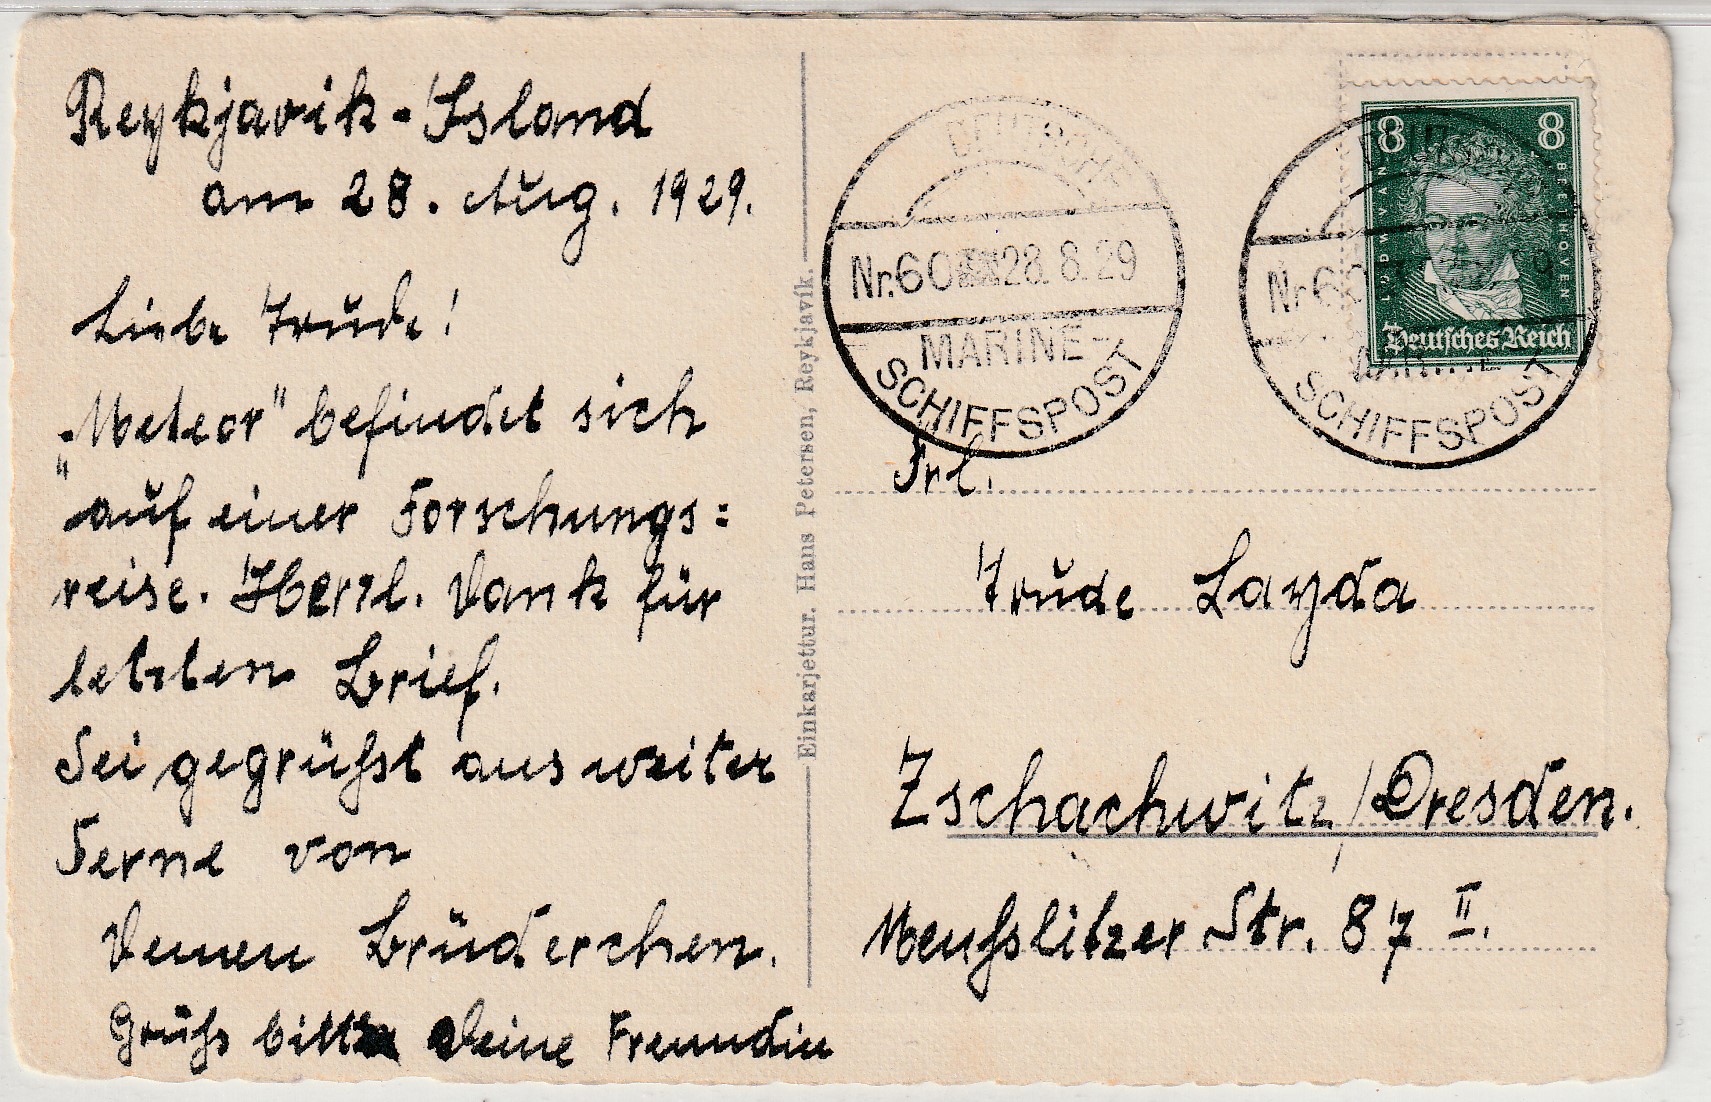 Reykjavik-Island
am 28. Aug. 1929.
Liebe Trude!
"Meteor" befindet sich
auf einer Forschungs=
reise. Herzl. Dank für
letzten Brief.
Sei gegrüßt aus weiter
Ferne von
Deinen Brüderchen.
Grüß bitte Deine Freundin
Einkarjettur. Hans Petersen, Reykjavík.
DEUTSCHE
Nr. 60 28.8.29
MARINE-
SCHIFFSPOST
Nr. 60
SCHIFFSPOST
8 8
LUDW. VAN BEETHOVEN
Deutsches Reich
Frl.
Trude Layda
Zschachwitz/Dresden.
Meußlitzer Str. 87 II.